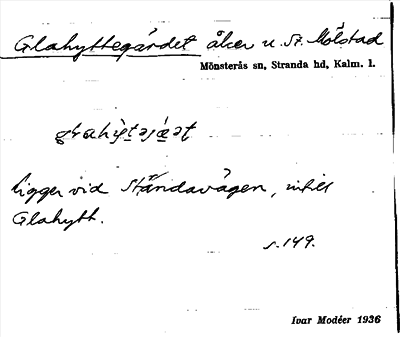 Glahyttegärdet åker u. St. Mölstad
Mönsterås sn, Stranda hd, Kalm. l.
ligger vid Ståndavägen, intill
Glahytt.
s. 149.
Ivar Modéer 1936